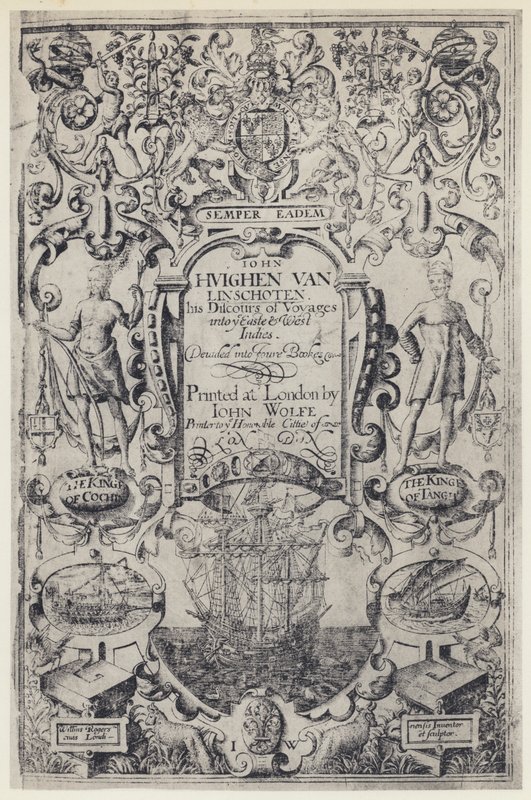 SEMPER EADEM
IOHN
HVIGHEN VAN
LINSCHOTEN.
his Discours of Voyages
into yͤ Easte & West
Indies.
Deuided into foure Bookes
Printed at London by
IOHN WOLFE
Printer to yͤ Honorable Cittie of
LONDON
THE KINGE
OF COCHIN
THE KING
OF TANGIL
Willms Rogers
ciuis Londi
nensis Inventor
et sculptor.
I W